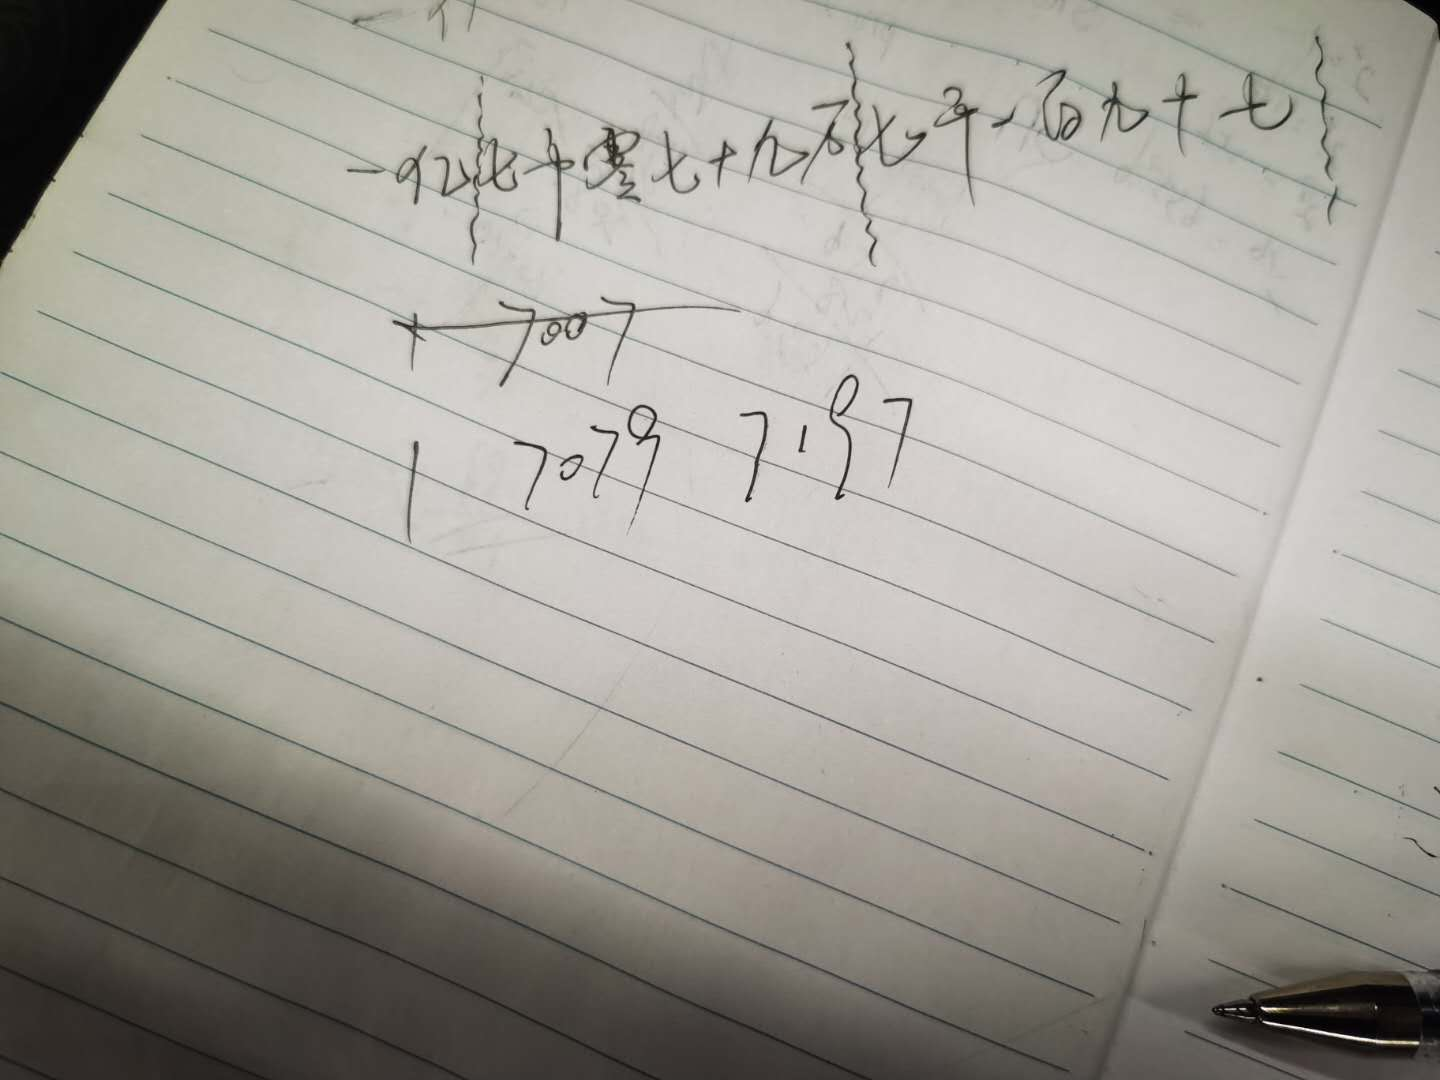 一亿七千零七十九万七千一百九十七
1 7007
1 7079 7197